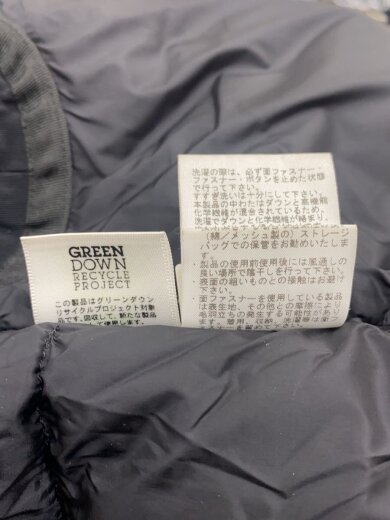 GREEN
DOWN
RECYCLE
PROJECT
この製品はグリーンダウン
リサイクルプロジェクト対象
です。回収して、新たな製品
して使用します。
洗濯の際は、必ず面ファスナー・
ファスナー・ボタンを止めた状態
で行って下さい。
すすぎ洗いは十分にして下さい。
本製品の中わたはダウンと高機能
化学繊維が混合されているため、
洗濯でダウンと化学繊維が絡まり、
(綿／メッシュ製の)ストレージ
バッグでの保管をお勧めいたしま
す。
・製品の使用前使用後には風通しの
良い場所で陰干しを行って下さい。
・表面の粗いものとの接触はお避け
下さい。
・面ファスナーを使用している製品
は表生地、その他との摩擦により
毛羽立ちの発生する可能性があり
ます。着用、収納、洗濯時は面フ